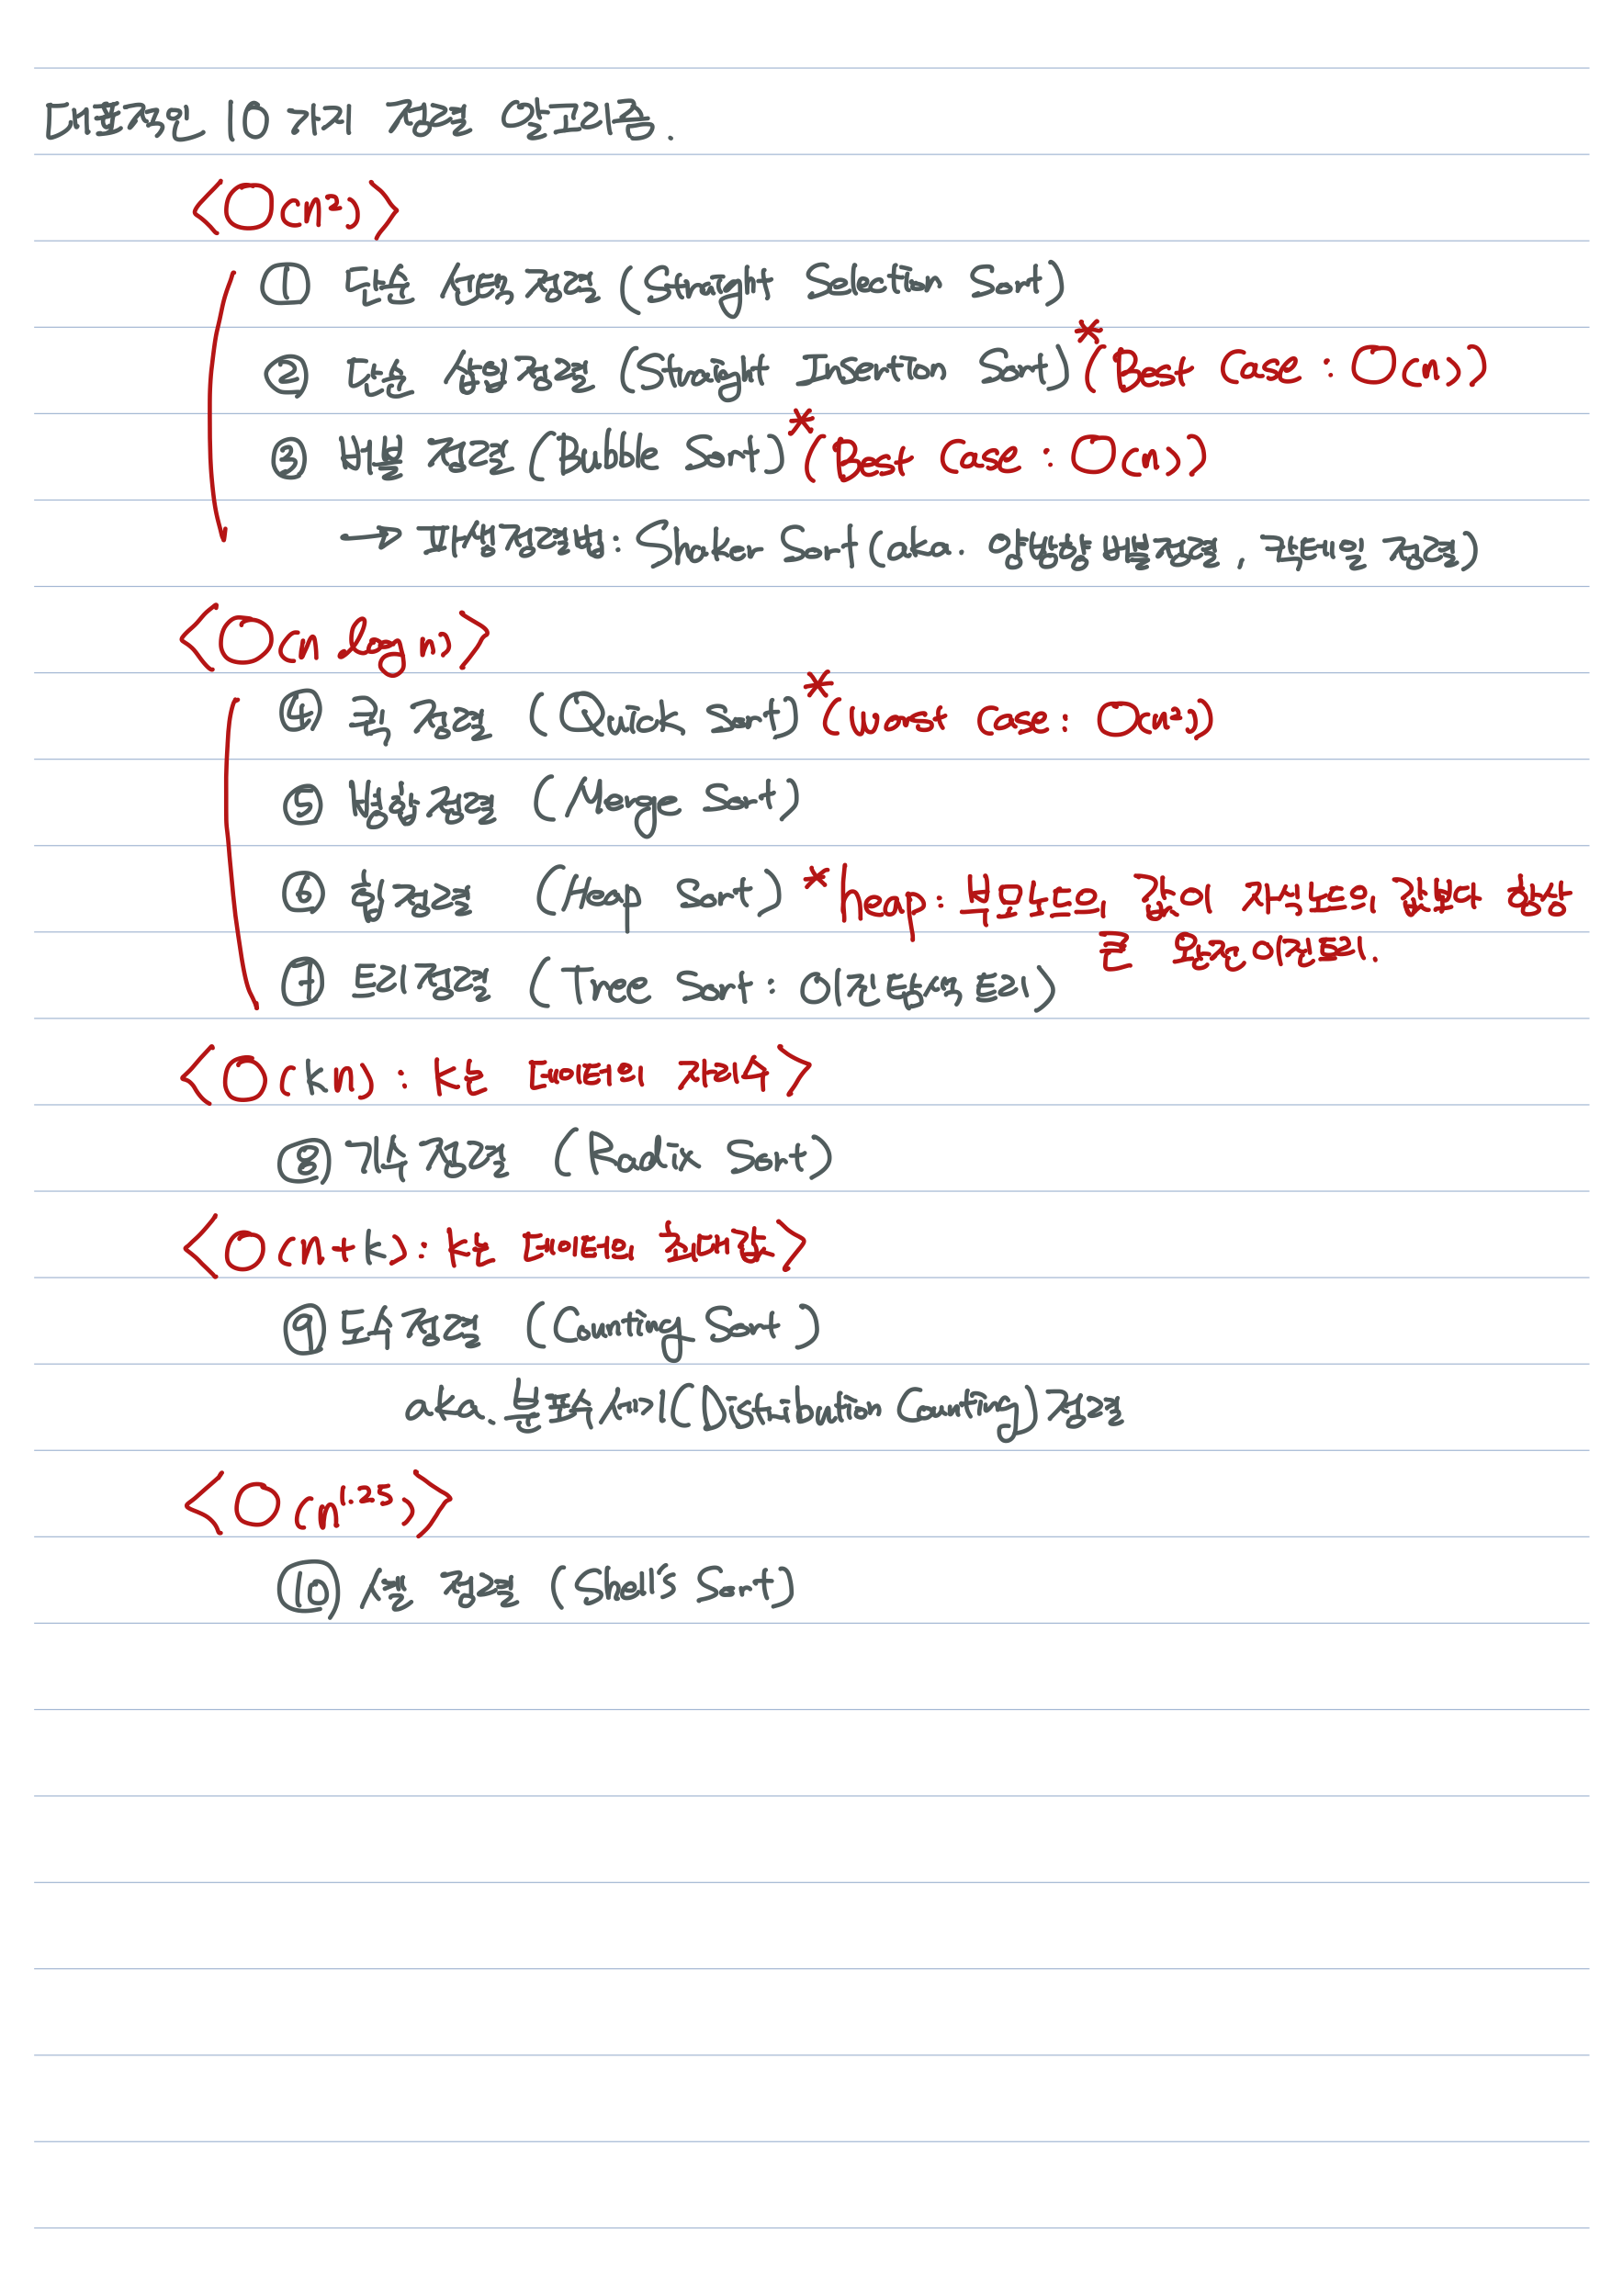 대표적인 10가지 정렬 알고리즘.
<O(n²)>
① 단순 선택 정렬 (Straight Selection Sort)
② 단순 삽입 정렬 (Straight Insertion Sort) *(Best Case : O(n))
③ 버블 정렬 (Bubble Sort) *(Best Case : O(n))
→ 파생정렬법: Shaker Sort (aka. 양방향 버블정렬, 칵테일 정렬)
<O(n log n)>
④ 퀵 정렬 (Quick Sort) *(Worst Case : O(n²))
⑤ 병합정렬 (Merge Sort)
⑥ 힙정렬 (Heap Sort) *heap: 부모노드의 값이 자식노드의 값보다 항상
큰 완전이진트리.
⑦ 트리정렬 (Tree Sort : 이진탐색트리)
<O(kn) : k는 데이터의 자리수>
⑧ 기수정렬 (Radix Sort)
<O(n+k): k는 데이터의 최대값>
⑨ 도수정렬 (Counting Sort)
aka. 분포수세기(Distribution Counting)정렬
<O(n¹·²⁵)>
⑩ 셸 정렬 (Shell's Sort)